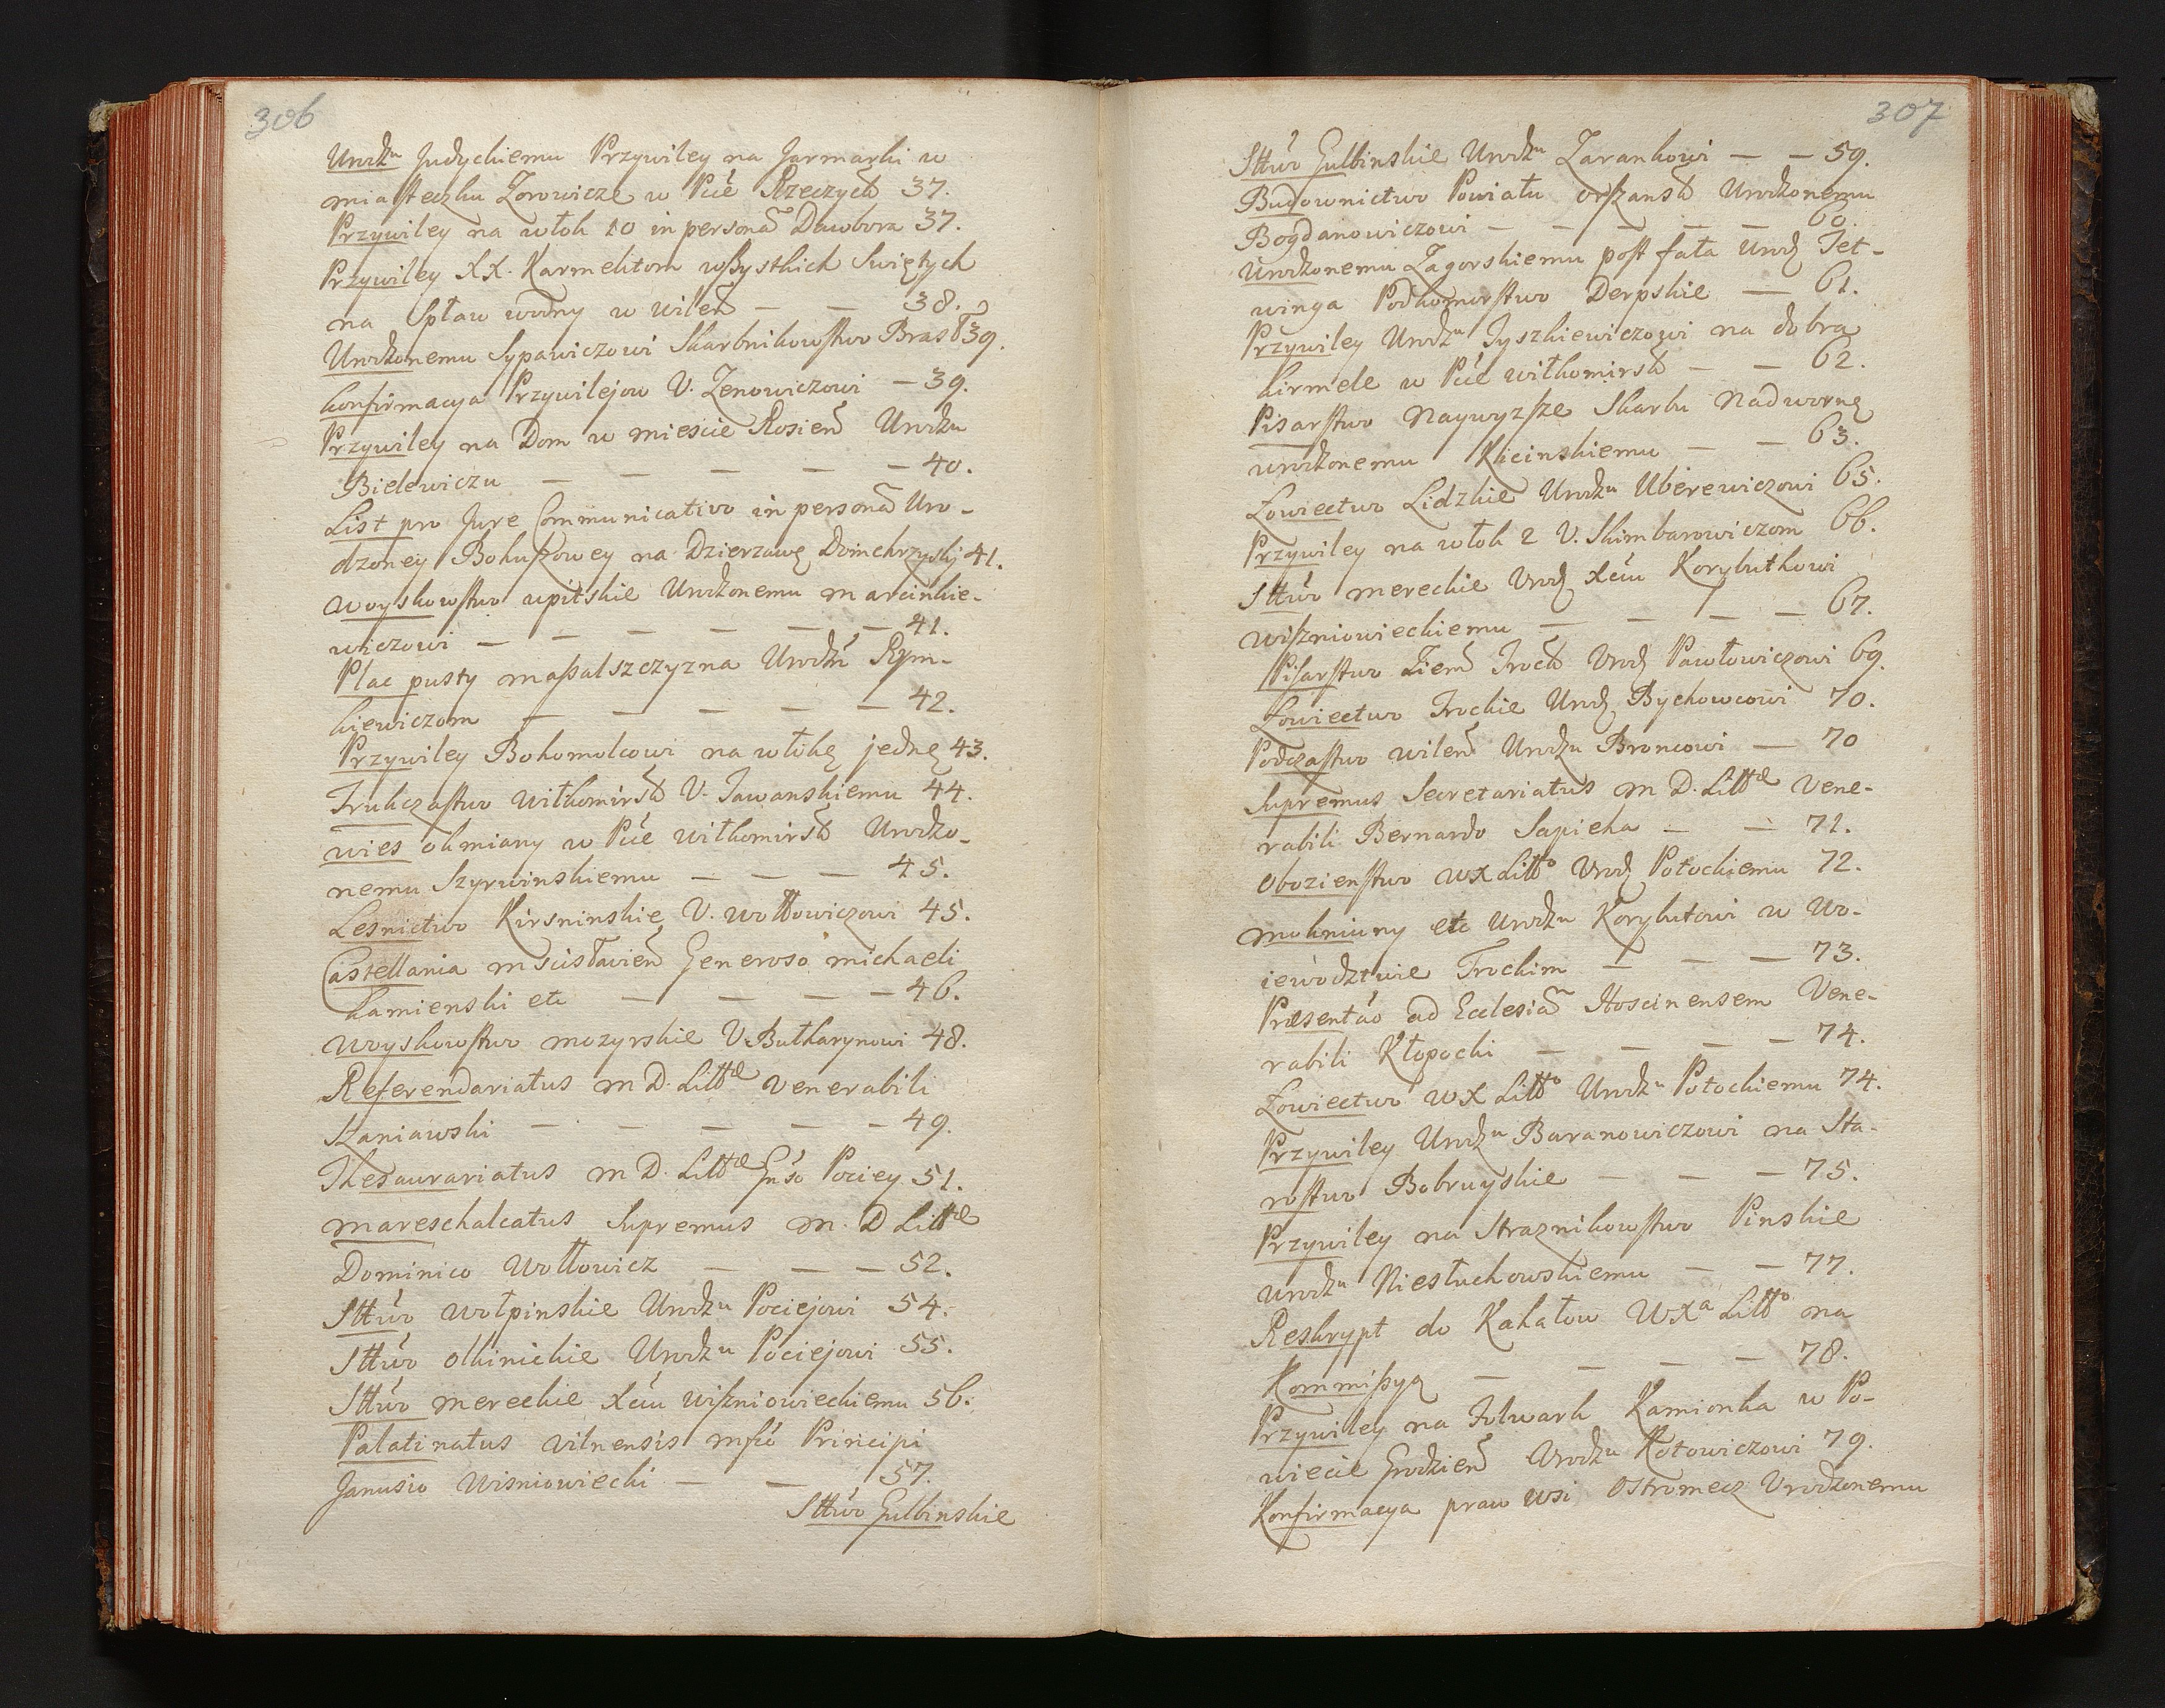 306
Urodzu Judyckiemu Przywiley na Jarmarki w
miasteczku Zorowicze w Pcie Rzeczyck 37.
Przywiley na włok 10 in persona Dawbora 37.
Przywiley XX. Karmelitom wszystkich Swiętych
na Spław wodny w wilen — — 38.
Urodzonemu Sypawiczowi Skarbnikowstwo Brasł 39.
konfirmacya Przywilejow U. Zenowiczowi — 39.
Przywiley na Dom w miescie Rosien Urodzu
Bielewiczu — — — — — 40.
List pro Jure Communicativo in persona Uro-
dzoney Bohuszowey na Dzierzawę 41.
woyskowstwo upitskie Urodzonemu marcinkie-
wiczowi — — — — — — 41.
Plac pusty massalszczyzna Urodzu Rym-
kiewiczom — — — — — 42.
Przywiley Bohomolcowi na włokę jednę 43.
Trukczastwo wiłkomirsk U. Jawanskiemu 44.
wies okmiany w Pcie wiłkomirsk Urodzo-
nemu Szyrwinskiemu — — — 45.
Lesnictwo Kirsninskie U. wołłowiczowi 45.
Castellania mscisławien Generoso michaeli
Kamienski etc — — — — 46.
woyskowstwo mozyrskie U. Bułharynowi 48.
Referendariatus m D. Littæ venerabili
Szaniawski — — — — — 49.
Thesaurariatus m D. Littæ Gnso Pociey 51.
mareschalcatus Supremus m. D Littæ
Dominico Wołłowicz — — — 52.
Sttwo wołpinskie Urodzu Pociejowi 54.
Sttwo olkinickie Urodzu Pociejowi 55.
Sttwo mereckie xciu wiszniowieckiemu 56.
Palatinatus vilnensis mfco Principi
Janusio Wisniowiecki — — 57.
Sttwo Gulbinskie
307
Sttwo Gulbinskie Urodzu Zarankowi — — 59.
Budownictwo Powiatu orszansk Urodzonemu
Bogdanowiczowi — — — — — 60.
Urodzonemu Zagorskiemu post fata Urodz Tet-
winga Podkomorstwo Derpskie — 61.
Przywiley Urodzu Tyszkiewiczowi na dobra
kirmele w Pcie wiłkomirsk — — 62.
Pisarstwo naywyzsze Skarbu nadwornę
urodzonemu Kicinskiemu — — 63.
Łowiectwo Lidzkie Urodzu Uberewiczowi 65.
Przywiley na włok 2 U. Skimbarowiczom 66.
Sttwo mereckie Urodz xciu Korybutkowi
wiszniowieckiemu — — — — 67.
Pisarstwo Ziem Trock Urodz Pawłowiczowi 69.
Łowiectwo Trockie Urodz Bychowcowi 70.
Podczastwo wilen Urodzu Broncowi — 70
Supremus Secretariatus m D. Littæ vene-
rabili Bernardo Sapieha — — 71.
Obozienstwo WX Litto Urodz Potockiemu 72.
mokniuny etc Urodzu Korybutowi w Wo-
iewodztwie Trockim — — — 73.
Præsentao ad Ecclesiam Hoscinensem Vene-
rabili Kłopocki — — — — 74.
Łowiectwo WX Litto Urodzu Potockiemu 74.
Przywiley Urodzu Baranowiczowi na Sta-
rostwo Bobruyskie — — — 75.
Przywiley na Straznikowstwo Pinskie
urodzu Niesłuchowskiemu — — 77.
Reskrypt do Kahałow WXa Litto na
Kommissyą — — — — 78.
Przywiley na Folwark Kamionka w Po-
wiecie Grodzien Urodzu Kotowiczowi 79.
Konfirmacya praw wsi Ostromecz Urodzonemu